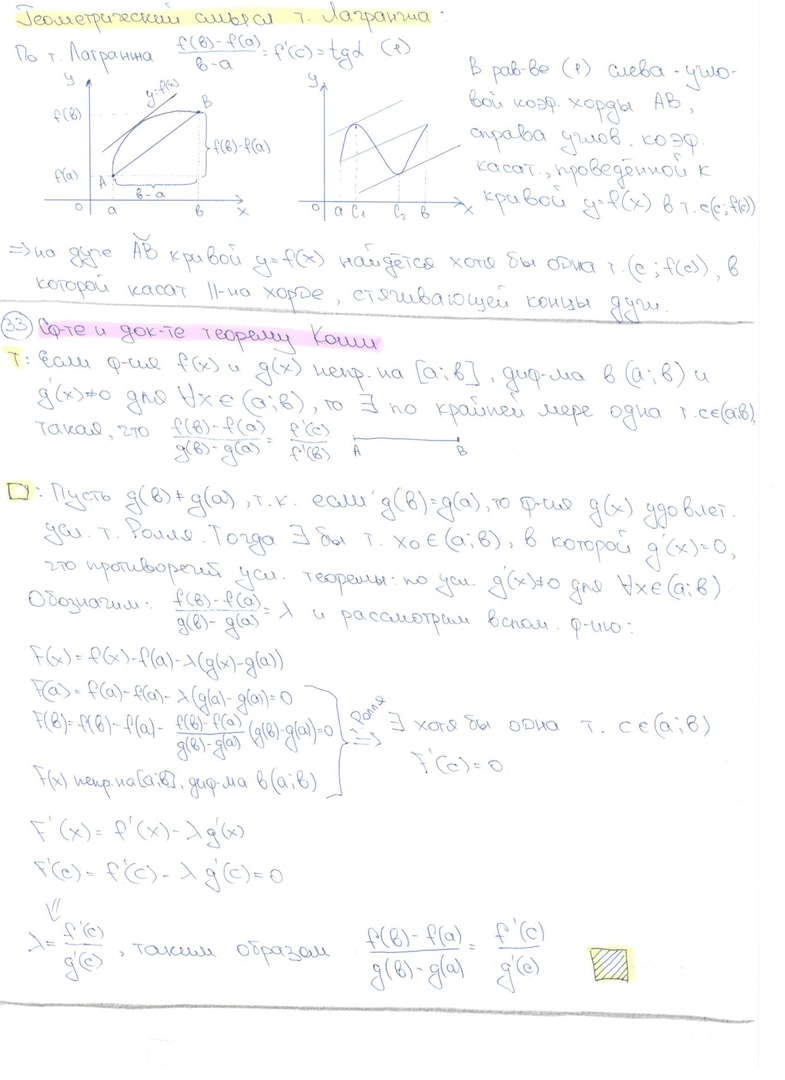 Геометрический смысл т. Лагранжа:
По т. Лагранжа f(в)-f(a)/в-a = f'(c) = tgα (1)
y y=f(x) B f(в) f(a) A f(в)-f(a) в-a 0 a в x
y 0 a C₁ C₂ в x
В рав-ве (1) слева - угло-
вой коэф. хорды AB,
справа углов. коэф.
касат., проведённой к
кривой y=f(x) в т. c(c; f(c))
⇒ на дуге AB кривой y=f(x) найдётся хотя бы одна т. (c; f(c)), в
которой касат ||-на хорде, стягивающей концы дуги.
33 Сф-те и док-те теорему Коши
Т: Если ф-ия f(x) и g(x) непр. на [a; в], диф-ма в (a; в) и
g'(x)≠0 для ∀x∈(a; в), то ∃ по крайней мере одна т. c∈(a;в),
такая, что f(в)-f(a)/g(в)-g(a) = f'(c)/f'(в) A B
□: Пусть g(в)≠g(a), т.к. если g(в)=g(a), то ф-ия g(x) удовлет.
усл. т. Ролля. Тогда ∃ бы т. x₀∈(a; в), в которой g'(x)=0,
что противоречий усл. теоремы: по усл. g'(x)≠0 для ∀x∈(a; в)
Обозначим: f(в)-f(a)/g(в)-g(a) = λ и рассмотрим вспом. ф-ию:
F(x)=f(x)-f(a)-λ(g(x)-g(a))
F(a)=f(a)-f(a)-λ(g(a)-g(a))=0
F(в)=f(в)-f(a)-f(в)-f(a)/g(в)-g(a) (g(в)-g(a))=0 Ролля ⇒ ∃ хотя бы одна т. c∈(a; в)
F'(c)=0
F(x) непр. на [a;в], диф-ма в (a; в)
F'(x)=f'(x)-λg'(x)
F'(c)=f'(c)-λg'(c)=0
⇓
λ=f'(c)/g'(c), таким образом f(в)-f(a)/g(в)-g(a) = f'(c)/g'(c)